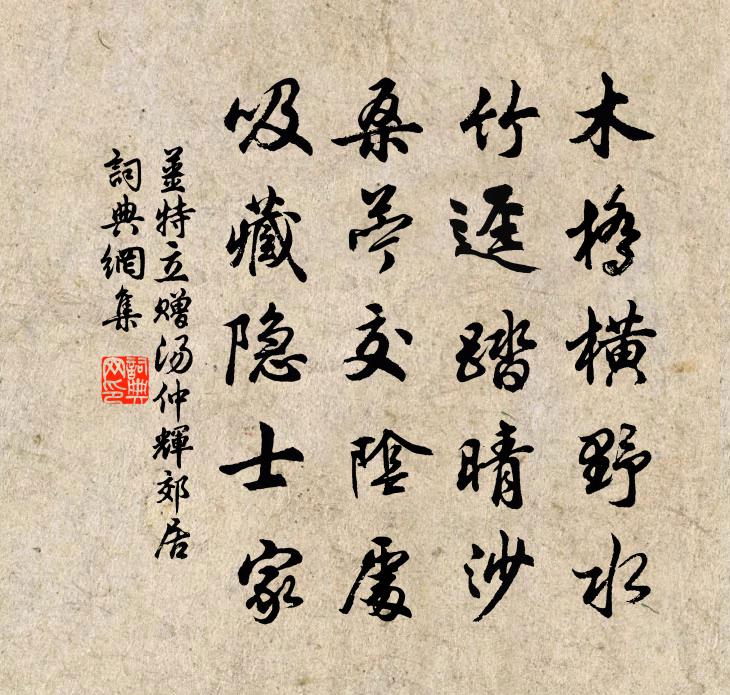 木橋橫野水
竹逕踏晴沙
桑苎交陰處
吸藏隐士家
薑特立赠汤仲輝郊居
詞典網集
詞典网印